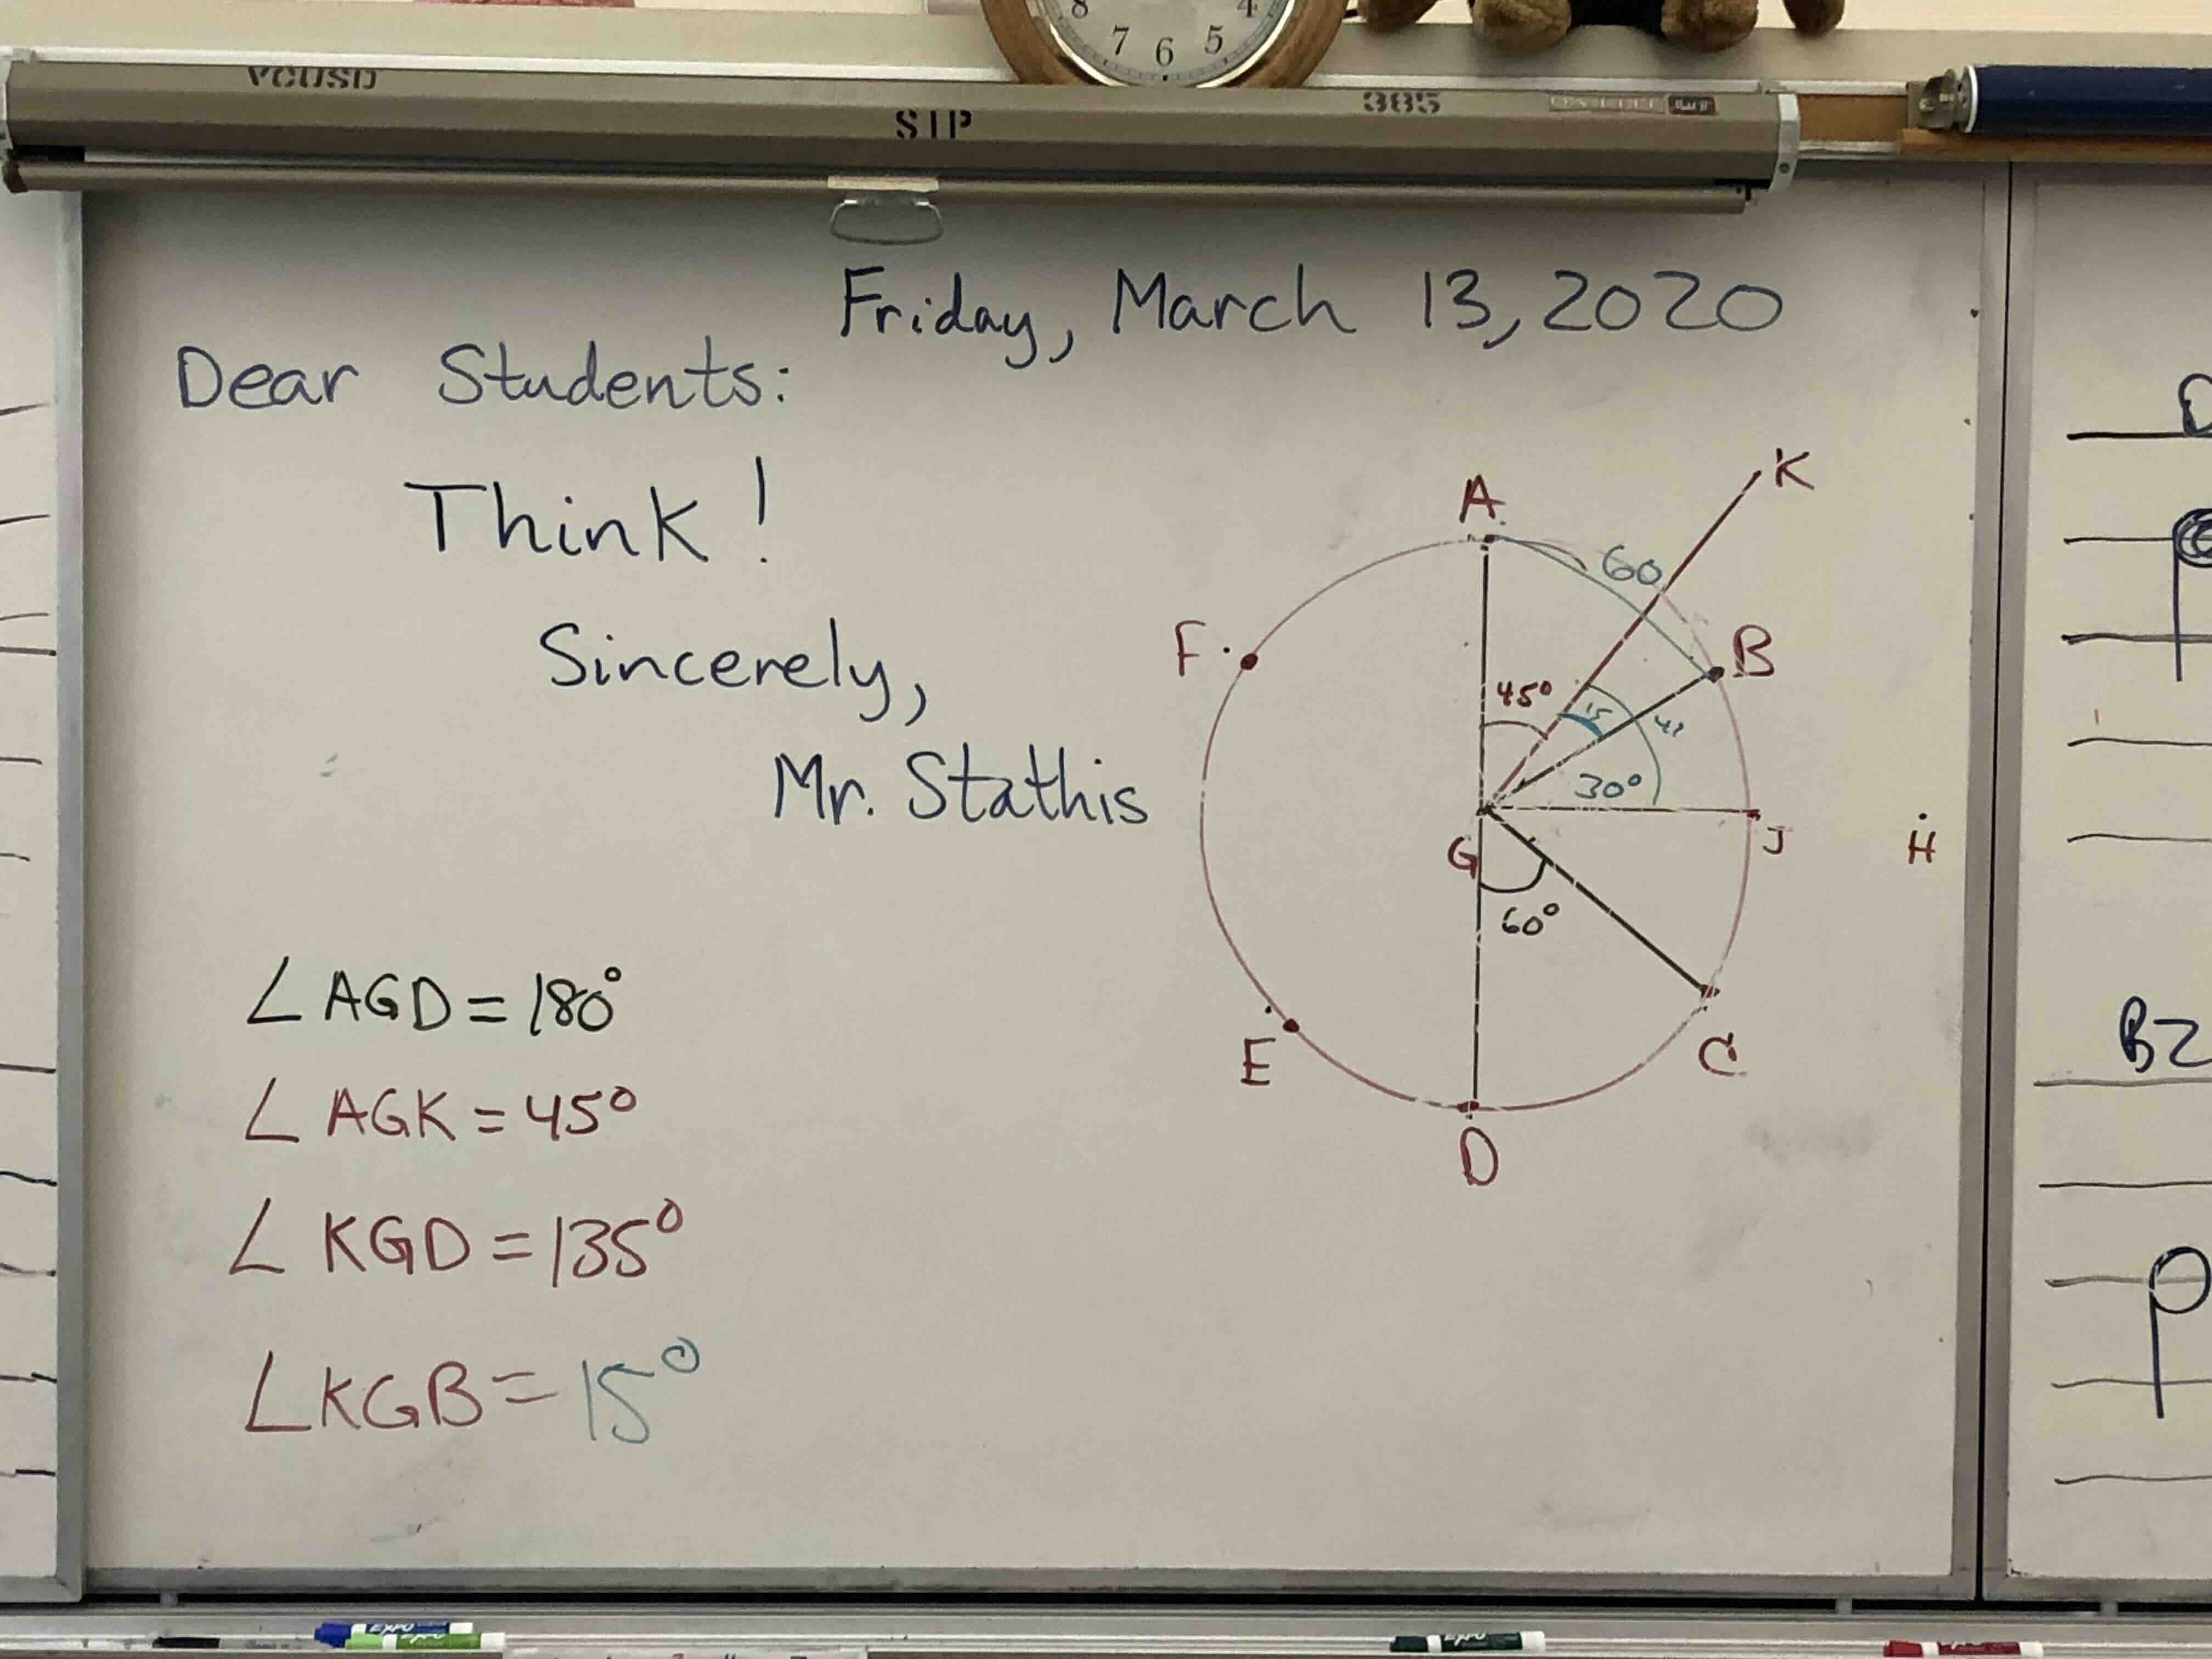 8 7 6 5 4
VCUSD
STP
385
Friday, March 13, 2020
Dear Students:
Think!
Sincerely,
Mr. Stathis
A
K
60
F
B
45°
15
30°
G
J
H
60°
E
C
D
∠AGD = 180°
∠AGK = 45°
∠KGD = 135°
∠KGB = 15°
B2
EXPO
EXPO
EXPO